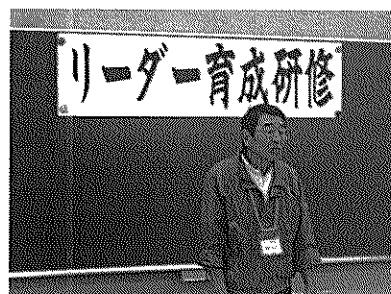 リーダー育成研修